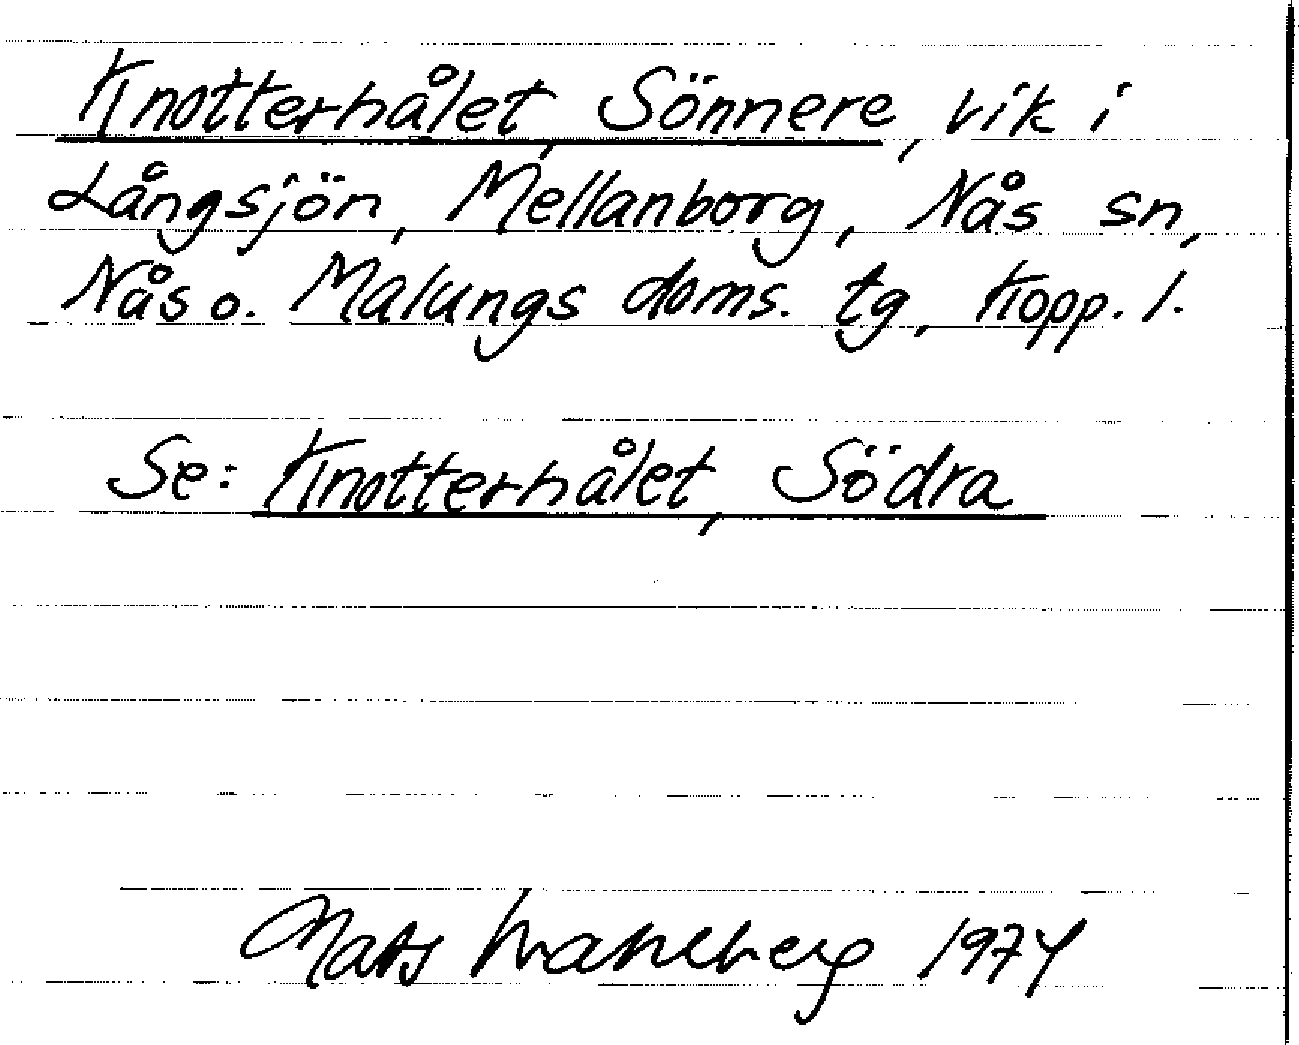 Knotterhålet, Sönnere, vik i
Långsjön, Mellanborg, Nås sn,
Nås o. Malungs doms. tg, Kopp. l.
Se: Knotterhålet, Södra
Mats Wahlberg 1974